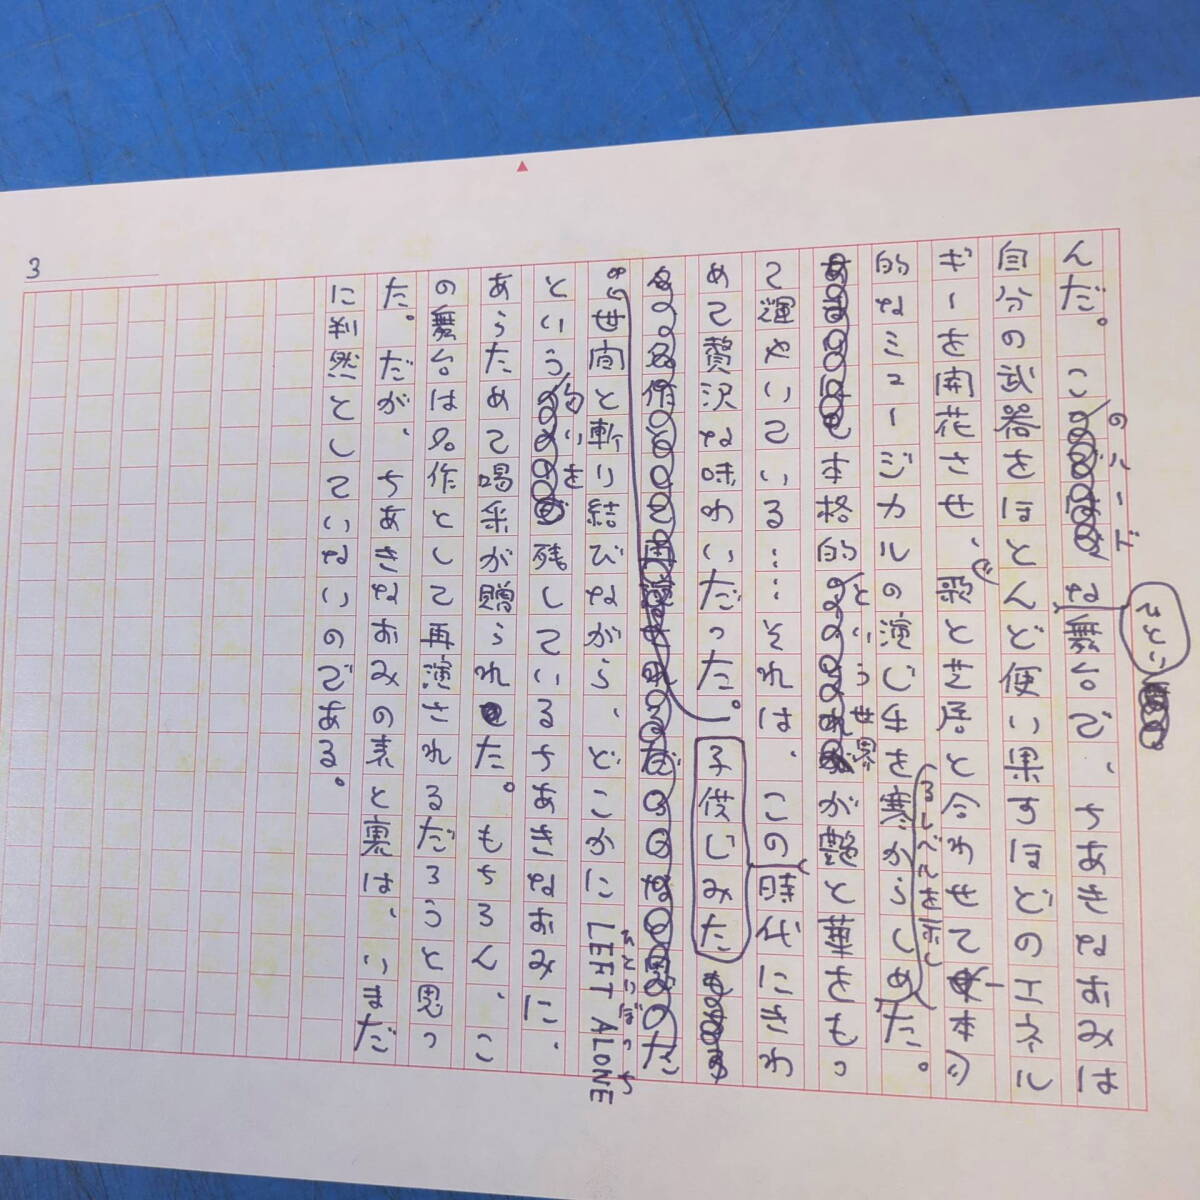 3
んだ。このハードな舞台で、ちあきなおみは
ひとり
自分の武器をほとんど使い果すほどのエネル
ギーを開花させ、歌と芝居と合わせて一本
的なミュージカルの演じ手を寒からしめた。
るしべルを示し
本格的という世界が艶と華をもっ
て輝やいている……それは、この時代にきわ
めて贅沢な味わいだった。子供じみた
世間と斬り結びながら、どこかに LEFT ALONE
ひとりぼっち
という匂いを残しているちあきなおみに、
あらためて喝采が贈られた。もちろん、こ
の舞台は名作として再演されるだろうと思っ
た。だが、ちあきなおみの表と裏は、いまだ
に判然としていないのである。